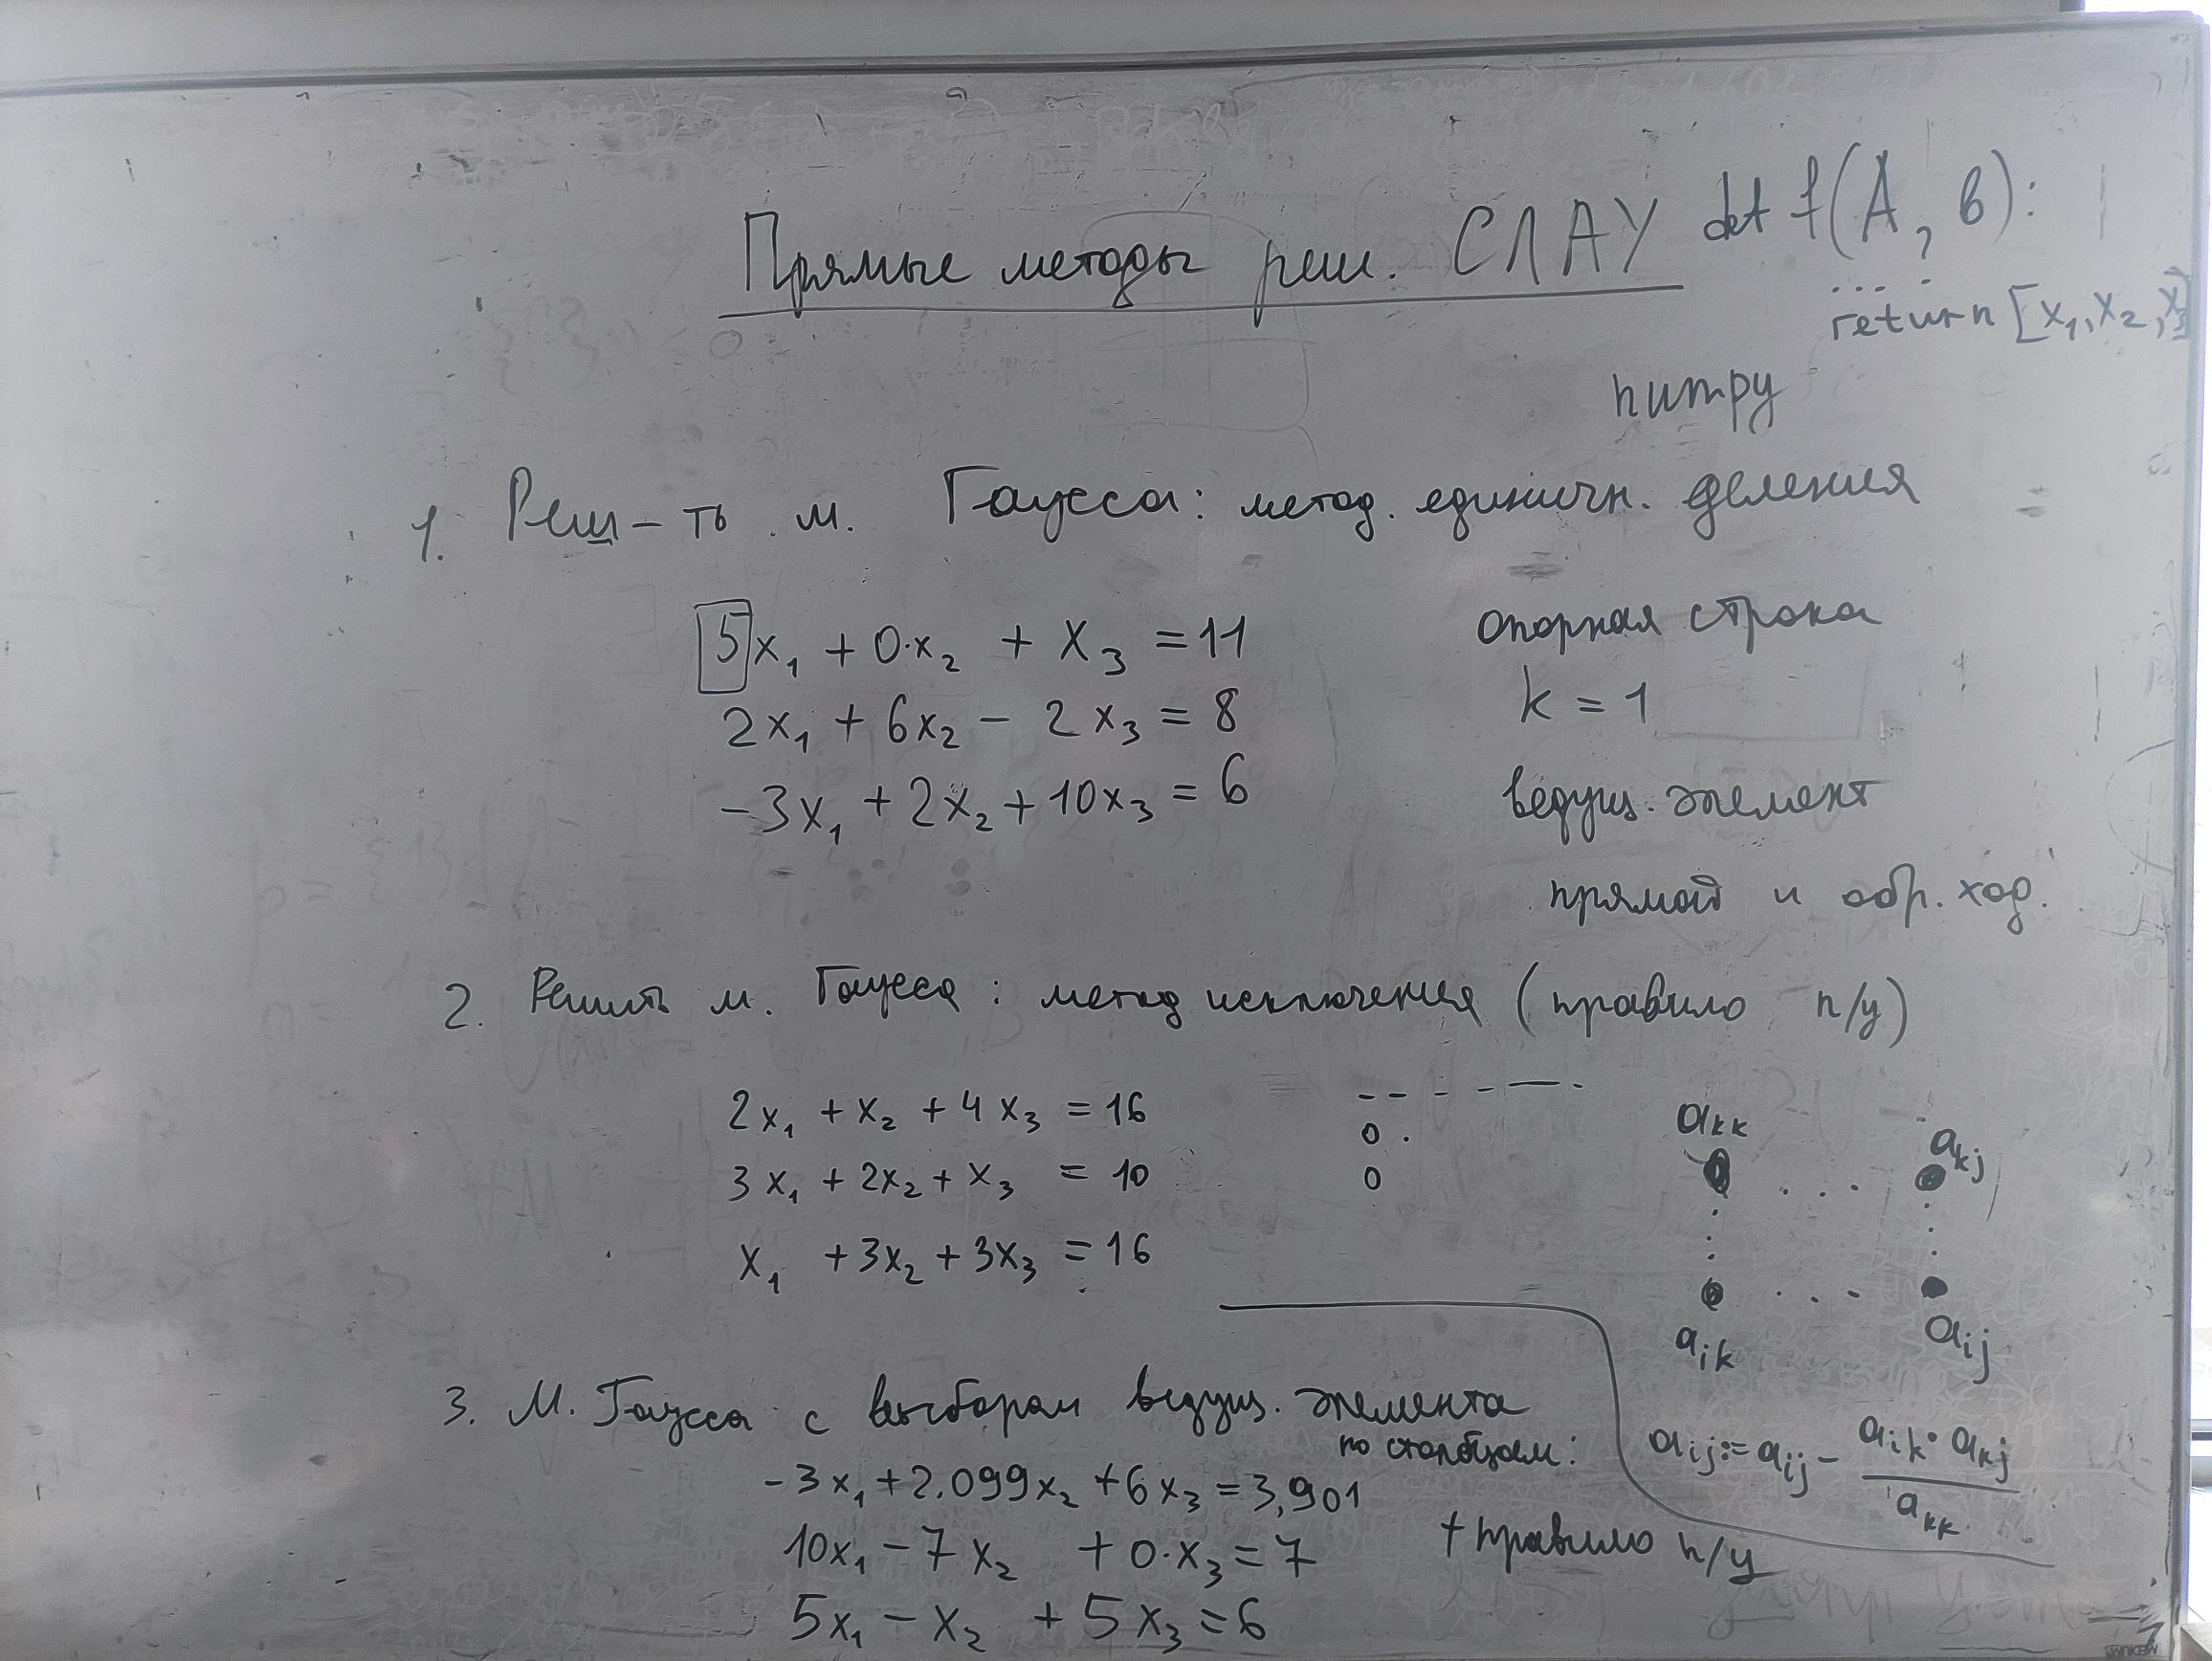 Прямые методы реш. СЛАУ
def f(A, b):
... .
return [x₁, x₂, x₃]
1. Реш-ть м. Гаусса: метод. единичн. деления
5x₁ + 0·x₂ + x₃ = 11
2x₁ + 6x₂ - 2x₃ = 8
-3x₁ + 2x₂ + 10x₃ = 6
опорная строка
k = 1
ведущ. элемент
прямой и обр. ход.
2. Решить м. Гаусса: метод исключения (правило п/у)
2x₁ + x₂ + 4x₃ = 16
3x₁ + 2x₂ + x₃ = 10
x₁ + 3x₂ + 3x₃ = 16
0 .
0
aₖₖ ... aₖⱼ
aᵢₖ ... aᵢⱼ
aᵢⱼ := aᵢⱼ - aᵢₖ · aₖⱼ / aₖₖ
3. М. Гаусса с выбором ведущ. элемента
по столбцам:
-3x₁ + 2.099x₂ + 6x₃ = 3,901
10x₁ - 7x₂ + 0·x₃ = 7
5x₁ - x₂ + 5x₃ = 6
+ правило п/у